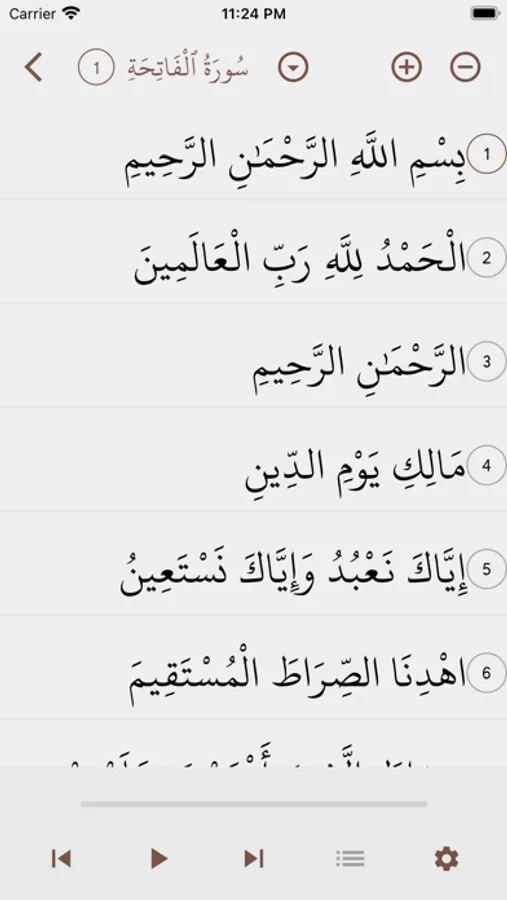 Carrier 11:24 PM
سُورَةُ ٱلْفَاتِحَةِ 1
بِسْمِ اللَّهِ الرَّحْمَـٰنِ الرَّحِيمِ 1
الْحَمْدُ لِلَّهِ رَبِّ الْعَالَمِينَ 2
الرَّحْمَـٰنِ الرَّحِيمِ 3
مَالِكِ يَوْمِ الدِّينِ 4
إِيَّاكَ نَعْبُدُ وَإِيَّاكَ نَسْتَعِينُ 5
اهْدِنَا الصِّرَاطَ الْمُسْتَقِيمَ 6